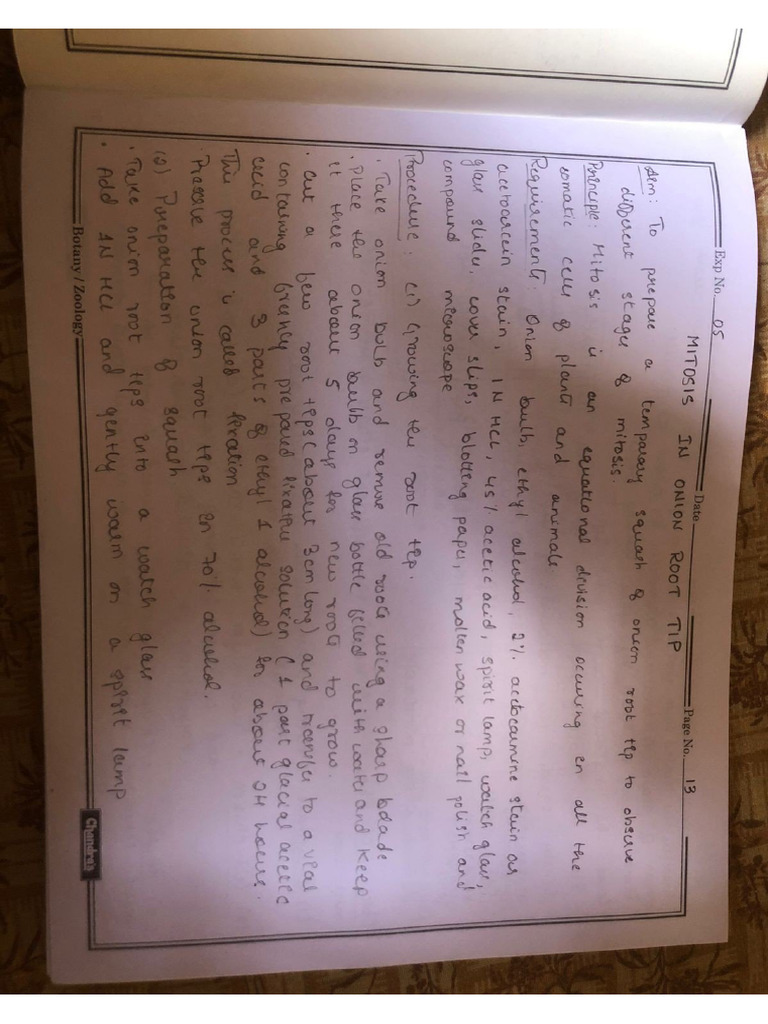 Exp No. 05 Date Page No. 13
MITOSIS IN ONION ROOT TIP
Aim: To prepare a temporary squash of onion root tip to observe
different stages of mitosis.
Principle: Mitosis is an equational division occuring in all the
somatic cells of plants and animals.
Requirements: Onion bulb, ethyl alcohol, 2% acetocarmine stain or
acetoorcein stain, 1N HCl, 45% acetic acid, spirit lamp, watch glass,
glass slides, cover slips, blotting paper, molten wax or nail polish and
compound microscope
Procedure: (1) Growing the root tip.
• Take onion bulb and remove old roots using a sharp blade
• Place the onion bulb on glass bottle filled with water and keep
it there about 5 days for new roots to grow.
• Cut a few root tips (about 3cm long) and transfer to a vial
containing freshly prepared fixative solution (1 part glacial acetic
acid and 3 parts of ethyl 1 alcohol) for about 24 hours.
This process is called fixation
Preserve the onion root tips in 70% alcohol.
(2) Preparation of squash
• Take onion root tips into a watch glass
• Add 1N HCl and gently warm on a spirit lamp
Botany / Zoology Chandra's